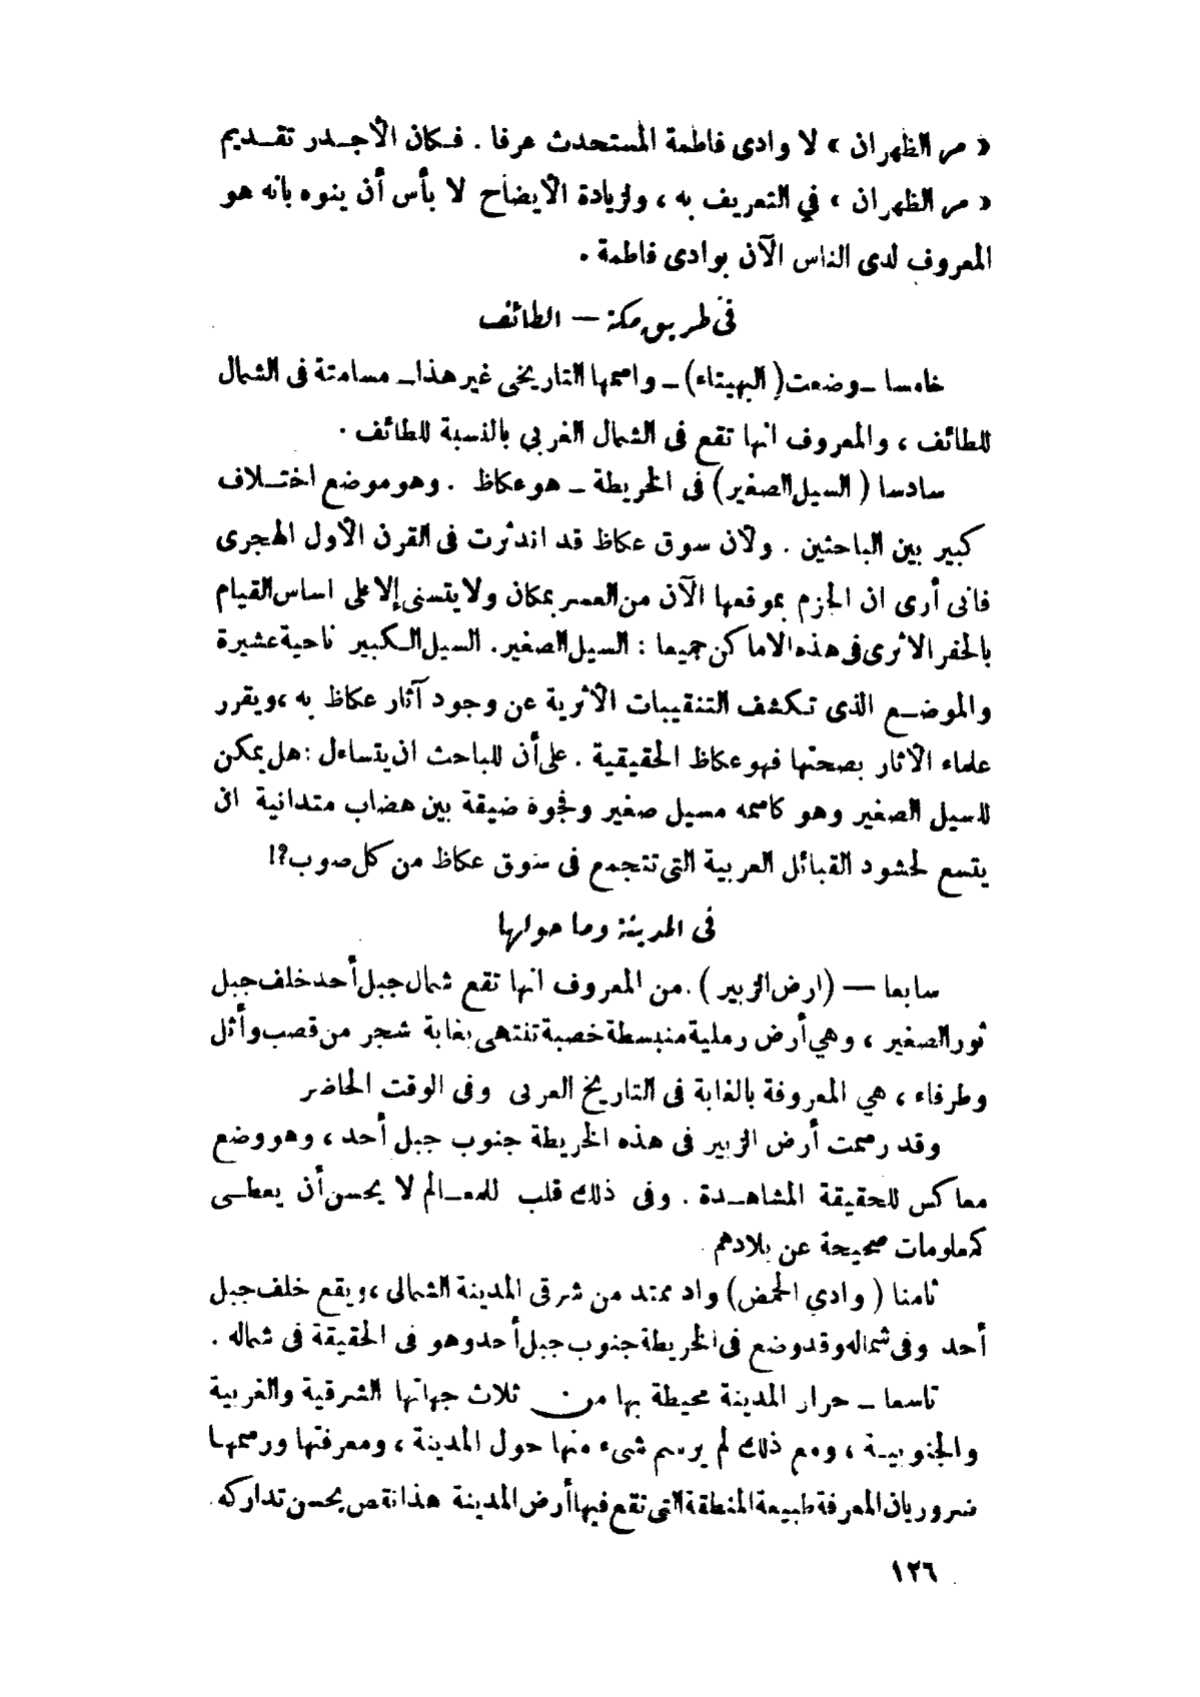 « مر الظهران » لا وادى فاطمة المستحدث عرفا . فـكان الأجـدر تقـديم
« مر الظهران » في التعريف به ، ولزيادة الأيضاح لا بأس أن ينوه بانه هو
المعروف لدى الناس الآن بوادى فاطمة .
فى طريق مكة — الطائف
خامسا ــ وضعت ( البهيتاء ) ــ واسمها التاريخى غير هذا ــ مسامتة فى الشمال
للطائف ، والمعروف انها تقع فى الشمال الغربي بالنسبة للطائف .
سادسا ( السيل الصغير ) فى الخريطة ــ هو عكاظ . وهو موضع اختـلاف
كبير بين الباحثين . ولأن سوق عكاظ قد اندثرت فى القرن الأول الهجرى
فانى أرى ان الجزم بموقعها الآن من العسر بمكان ولا يتسنى إلا على اساس القيام
بالحفر الاثرى فى هذه الاماكن جميعا : السيل الصغير . السيل الـكبير ناحية عشيرة
والموضـع الذى تـكشف التنقيبات الأثرية عن وجود آثار عكاظ به ، ويقرر
علماء الآثار بصحتها فهو عكاظ الحقيقية . على أن للباحث ان يتساءل : هل يمكن
للسيل الصغير وهو كاسمه مسيل صغير وفجوة ضيقة بين هضاب متدانية ان
يتسع لحشود القبائل العربية التى تتجمع فى سوق عكاظ من كل صوب ؟!
فى المدينة وما حولها
سابعا — ( ارض الزبير ) . من المعروف انها تقع شمال جبل أحد خلف جبل
ثور الصغير ، وهي أرض رملية منبسطة خصبة تنتهى بغابة شجر من قصب وأثل
وطرفاء ، هي المعروفة بالغابة فى التاريخ العربى وفى الوقت الحاضر
وقد رسمت أرض الزبير فى هذه الخريطة جنوب جبل أحد ، وهو وضع
معاكس للحقيقة المشاهـدة . وفى ذلك قلب للمعـالم لا يحسن أن يعطـى
كمعلومات صحيحة عن بلادهم .
ثامنا ( وادي الحمض ) واد ممتد من شرقى المدينة الشمالى ، ويقع خلف جبل
أحد وفى شماله وقد وضع فى الخريطة جنوب جبل أحد وهو فى الحقيقة فى شماله .
تاسعا ــ حرار المدينة محيطة بها من ثلاث جهاتها الشرقية والغربية
والجنوبيـة ، ومع ذلك لم يرسم شىء منها حول المدينة ، ومعرفتها ورسمهـا
ضروريان لمعرفة طبيعة المنطقة التى تقع فيها أرض المدينة هذا نقص يحسن تداركه .
١٢٦